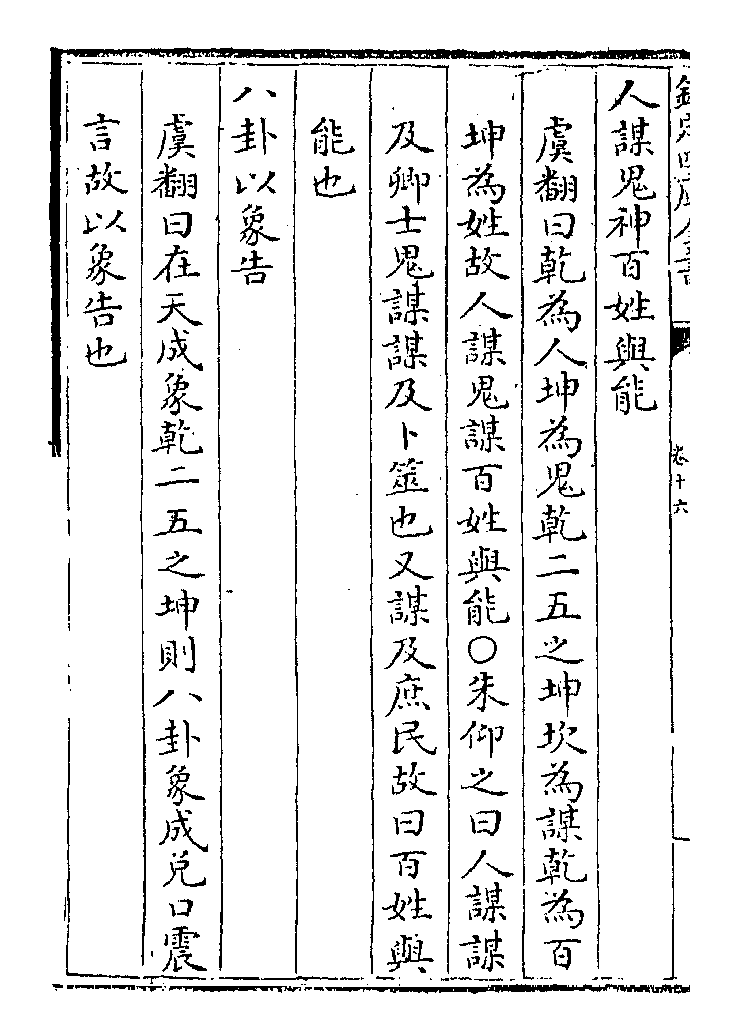 欽定四庫全書
卷十六
人謀鬼神百姓與能
虞翻曰乾為人坤為鬼乾二五之坤坎為謀乾為百
坤為姓故人謀鬼謀百姓與能○朱仰之曰人謀謀
及卿士鬼謀謀及卜筮也又謀及庶民故曰百姓與
能也
八卦以象告
虞翻曰在天成象乾二五之坤則八卦象成兑口震
言故以象告也